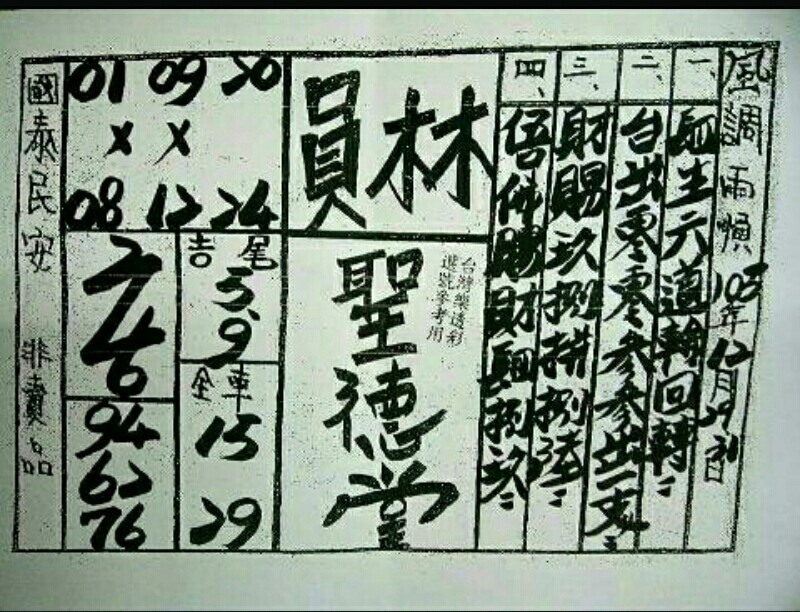 風調雨順
105年12月29.31日
一、
六道輪回轉
二、
台出零零參參出一支
三、
財賜玖捌
捌陸
四、
賜財
捌玖
林
員
台灣樂透彩
選號參考用
聖德堂
01 09 20
× ×
08 12 24
吉尾
5.9
全車
15
29
2
4
6
94
62
76
國泰民安 非賣品